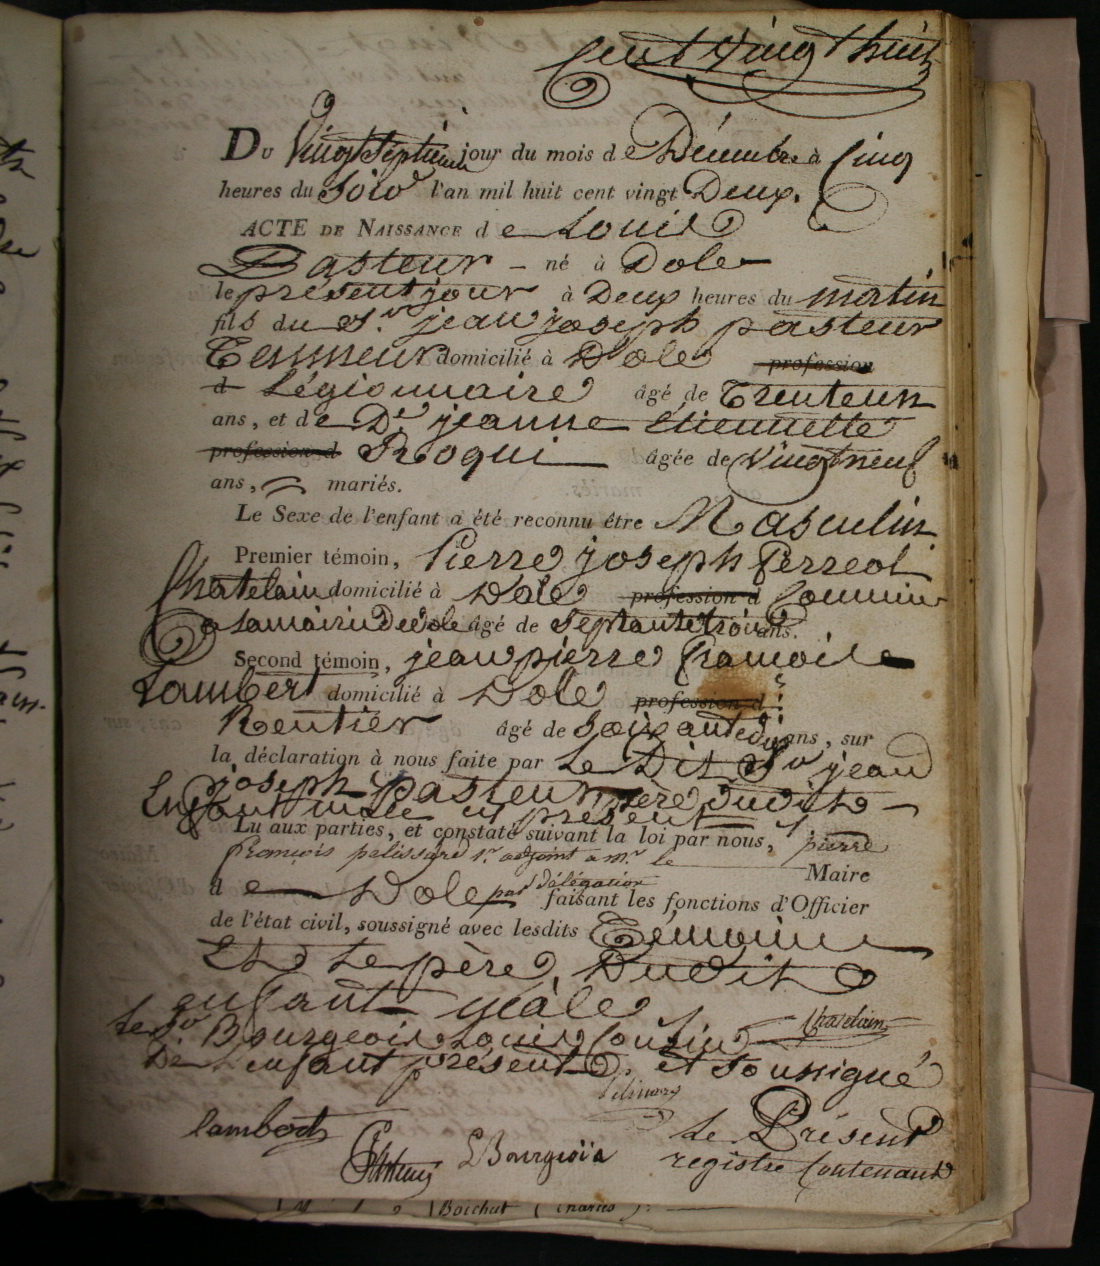 Cent Vingt huit
DU Vingt Septieme jour du mois de Décembre à Cinq
heures du Soir l'an mil huit cent vingt Deux.
ACTE DE NAISSANCE de Louis
Pasteur né à Dole
le présent jour à Deux heures du matin
fils du Sr. jean joseph pasteur
Tanneur domicilié à Dole profession
d Légionnaire âgé de Trenteun
ans, et de De jeanne Etiennette
profession d Roqui âgée de vingt neuf
ans, mariés.
Le Sexe de l'enfant a été reconnu être Masculin
Premier témoin, Pierre joseph Ferreol
Chatelain domicilié à Dole profession d Commis
a la mairie De Dole âgé de Septante trois ans.
Second témoin, jean pierre francois
Lambert domicilié à Dole profession d
Rentier âgé de Soixante ans, sur
la déclaration à nous faite par Le Dit Sr jean
joseph pasteur père Dudit
Enfant mâle et présent
Lu aux parties, et constaté suivant la loi par nous, pierre
francois 1r. adjoint a mr. le Maire
de Dole par délégation faisant les fonctions d'Officier
de l'état civil, soussigné avec lesdits Témoins
Et Le père Dudit
enfant mâle
Chatelain
le Sr Bourgeois Louis Cousin
De L'enfant présent et soussigné
Lambert
L Bourgeois
Le Présent
registre Contenant
Boichut (Charles)